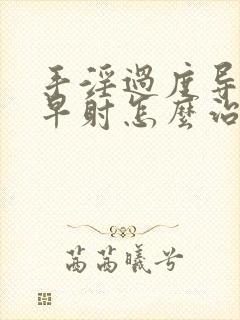 手淫過度导
早射怎麼治
茜茜曦兮